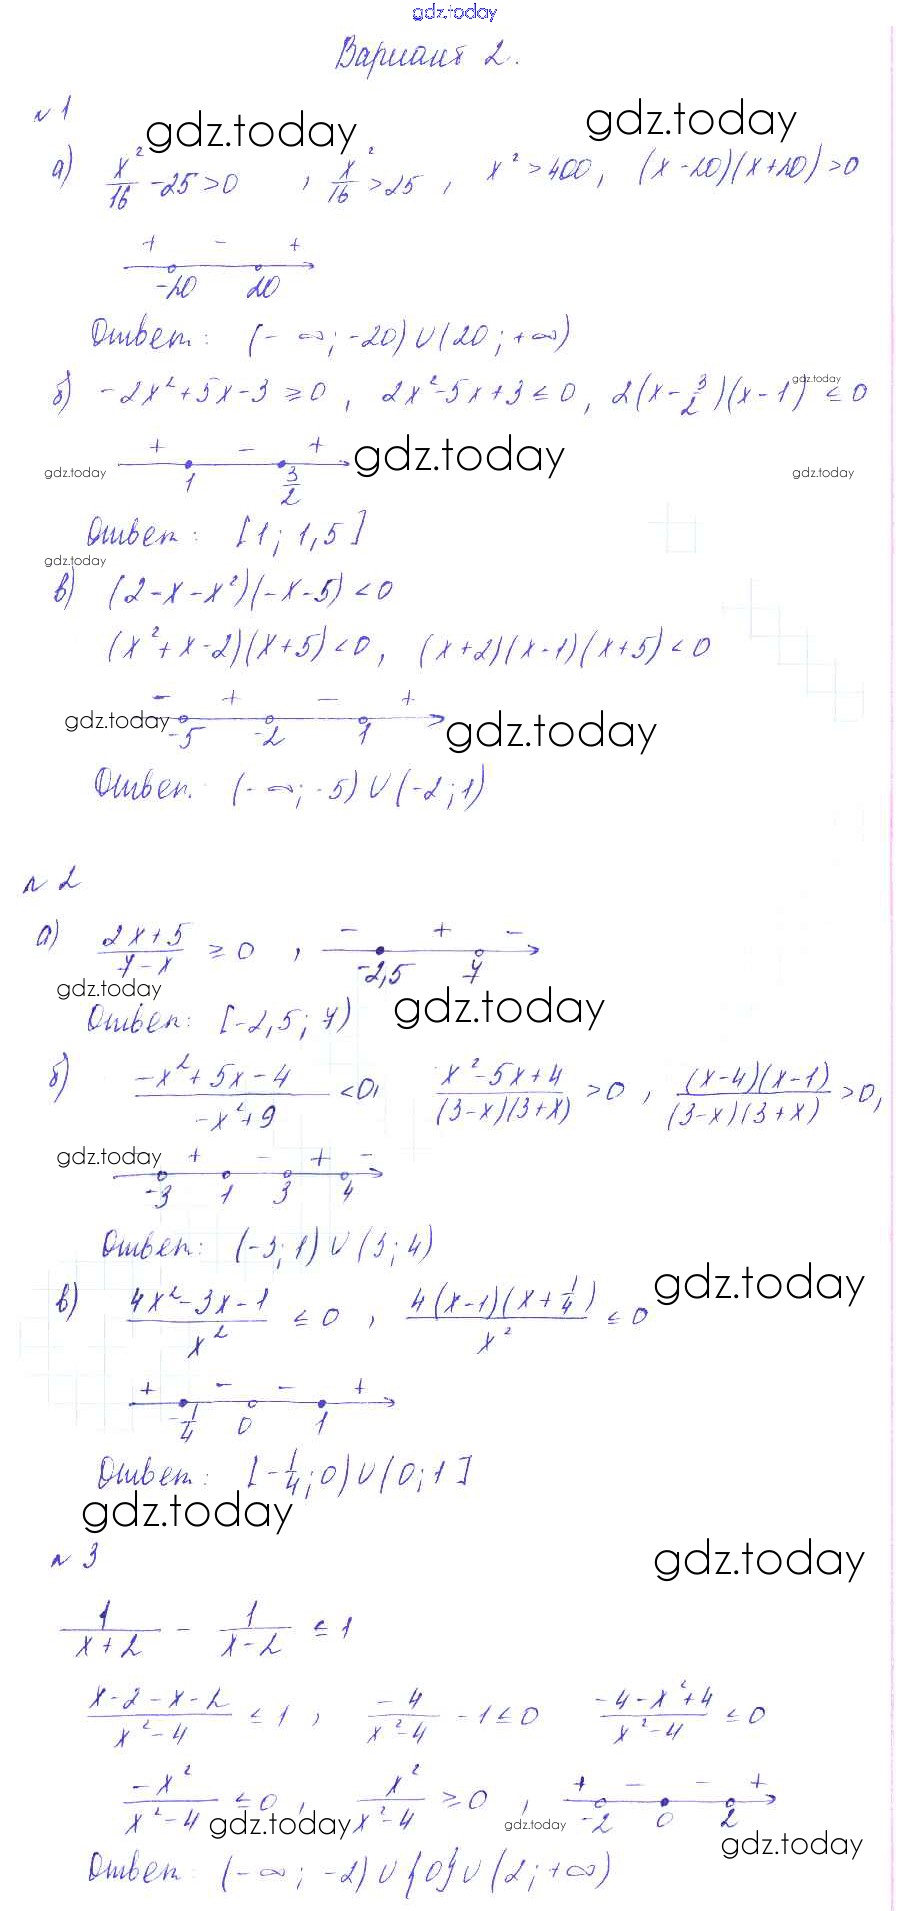 gdz.today
Вариант 2.
№ 1
gdz.today gdz.today
а) x²/16 - 25 > 0 , x²/16 > 25 , x² > 400, (x - 20)(x + 20) > 0
+ - +
-20 20
Ответ: (- ∞; -20) ∪ (20; +∞)
б) -2x² + 5x - 3 ≥ 0 , 2x² - 5x + 3 ≤ 0, 2(x - 3/2)(x - 1) ≤ 0
gdz.today
+ - + gdz.today
gdz.today 1 3/2 gdz.today
Ответ: [1; 1,5]
gdz.today
в) (2 - x - x²)(-x - 5) < 0
(x² + x - 2)(x + 5) < 0, (x + 2)(x - 1)(x + 5) < 0
- + - +
gdz.today -5 -2 1 gdz.today
Ответ. (- ∞; -5) ∪ (-2; 1)
№ 2
а) (2x + 5)/(7 - x) ≥ 0 , - + -
-2,5 7
gdz.today gdz.today
Ответ: [-2,5; 7)
б) (-x² + 5x - 4)/(-x² + 9) < 0, (x² - 5x + 4)/((3 - x)(3 + x)) > 0 , ((x - 4)(x - 1))/((3 - x)(3 + x)) > 0,
gdz.today + - + -
-3 1 3 4
Ответ: (-3; 1) ∪ (3; 4)
gdz.today
в) (4x² - 3x - 1)/x² ≤ 0 , (4(x - 1)(x + 1/4))/x² ≤ 0
+ - - +
-1/4 0 1
Ответ: [-1/4; 0) ∪ (0; 1]
gdz.today
№ 3 gdz.today
1/(x + 2) - 1/(x - 2) ≤ 1
(x - 2 - x - 2)/(x² - 4) ≤ 1 , -4/(x² - 4) - 1 ≤ 0 (-4 - x² + 4)/(x² - 4) ≤ 0
-x²/(x² - 4) ≤ 0 , x²/(x² - 4) ≥ 0 , + - - +
-2 0 2
gdz.today gdz.today gdz.today
Ответ: (- ∞; -2) ∪ {0} ∪ (2; +∞)